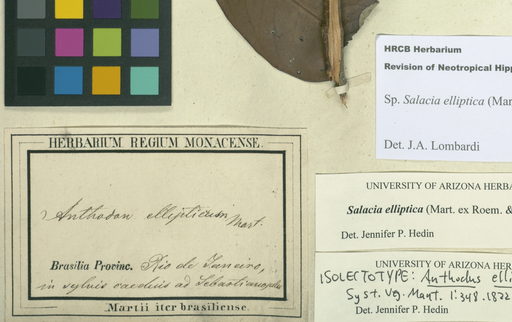 HERBARIUM REGIUM MONACENSE.
Anthodon ellipticum Mart.
Brasilia Provinc. Rio de Janeiro,
in sylvis caeduis ad Sebastianopolin
Martii iter brasiliense.
HRCB Herbarium
Revision of Neotropical Hipp
Sp. Salacia elliptica (Mar
Det. J.A. Lombardi
UNIVERSITY OF ARIZONA HERBA
Salacia elliptica (Mart. ex Roem. &
Det. Jennifer P. Hedin
UNIVERSITY OF ARIZONA HER
ISOLECTOTYPE: Anthodus elli
Syst. Veg. Mant. 1:348. 1822
Det. Jennifer P. Hedin